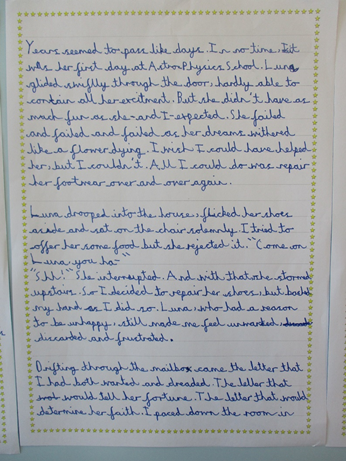 Years seemed to pass like days. In no time, it
was her first day at AstroPhysics School. Luna
glided swiftly through the door, hardly able to
contain all her excitment. But she didn't have as
much fun as she and I expected. She failed
and failed and failed as her dreams withered
like a flower dying. I wish I could have helped
her, but I couldn't. All I could do was repair
her footwear over and over again.
Luna drooped into the house, flicked her shoes
aside and sat on the chair solemnly. I tried to
offer her some food but she rejected it. "Come on
Luna, you ha-"
"Shh!" She interrupted. And with that she stormed
upstairs. So I decided to repair her shoes, but
my hand as I did so. Luna, who had a reason
to be unhappy, still made me feel unwanted,
discarded and frustrated.
Drifting through the mailbox came the letter that
I had both wanted and dreaded. The letter that
would tell her fortune. The letter that would
determine her faith. I paced down the room in